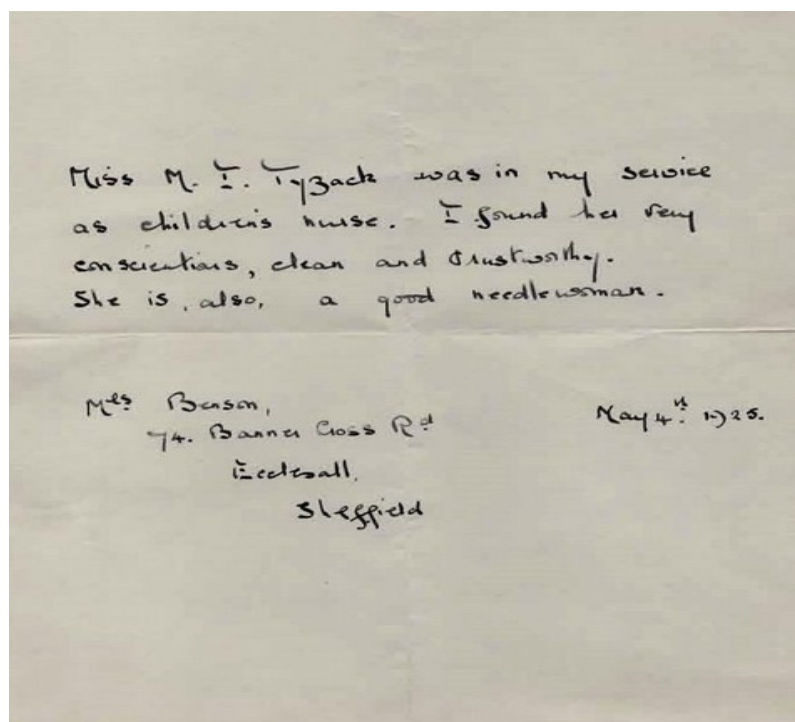 Miss M. I. Tyzack was in my service
as children's nurse. I found her very
conscientious, clean and trustworthy.
She is, also, a good needlewoman.
Mrs Benson,
74. Banner Cross Rd
Ecclesall,
Sheffield
May 4th. 1925.